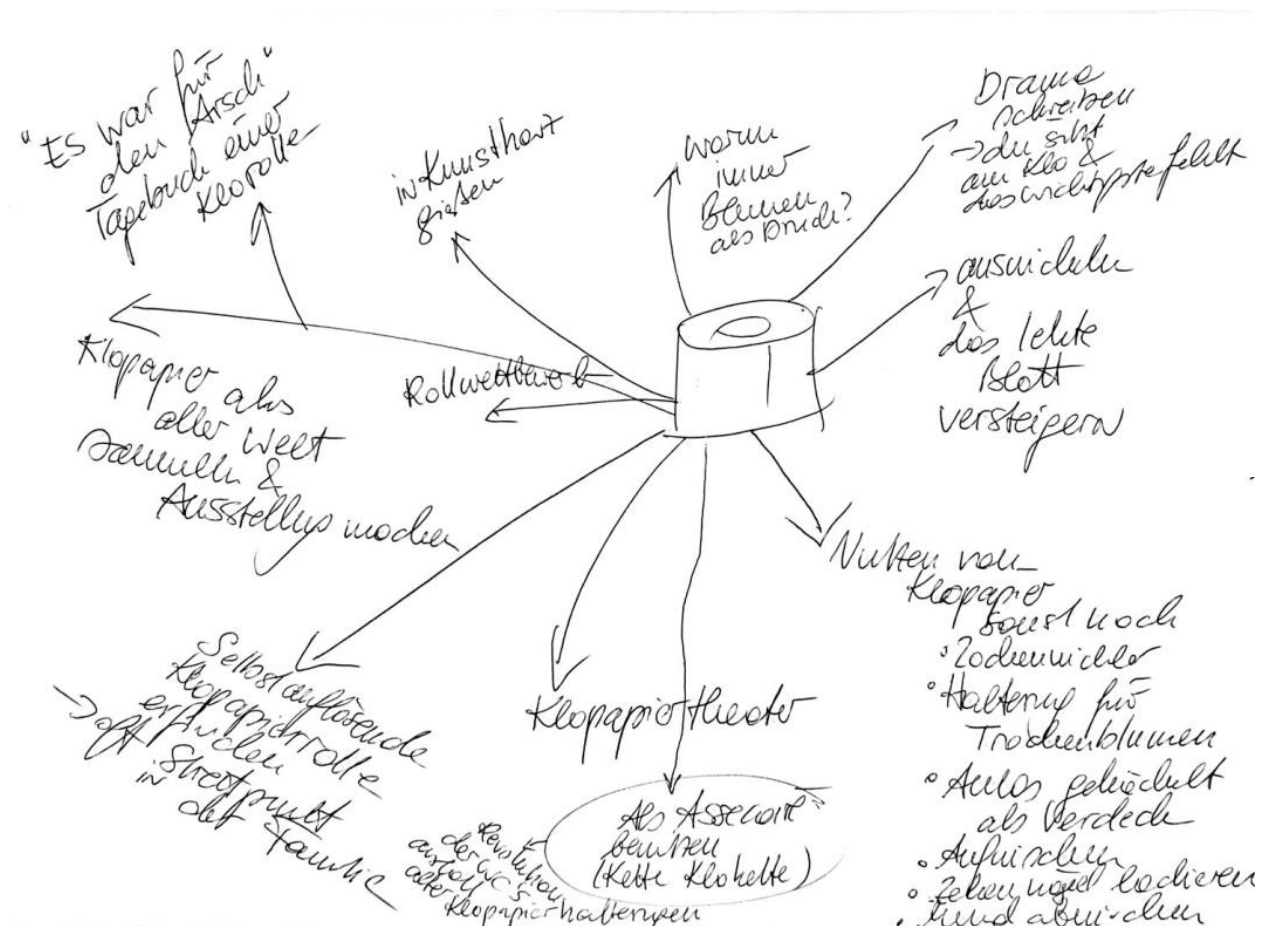 "Es war für
den Arsch"
Tagebuch einer
Klorolle
in Kunstharz
gießen
warum
immer
Blumen
als Druck?
Drama
schreiben
→ du sitzt
am Klo &
das wichtigste fehlt
auswickeln
&
das letzte
Blatt
versteigern
Klopapier aus
aller Welt
sammeln &
Ausstellung machen
Rollwettbewerb
Selbstauflösende
Klopapierrolle
erfinden
→ oft Streitpunkt
in der
Familie
Klopapiertheater
Als
benutzen
(Kette Klokette)
Revolution
der WC's
anstatt
alter
Klopapierhalterungen
Nutzen von
Klopapier
sonst noch
• Lockenwickler
• Halterung für
Trockenblumen
• Autos gehäkelt
als Verdeck
• Aufwischen
• Zehennägel lackieren
• Mund abwischen